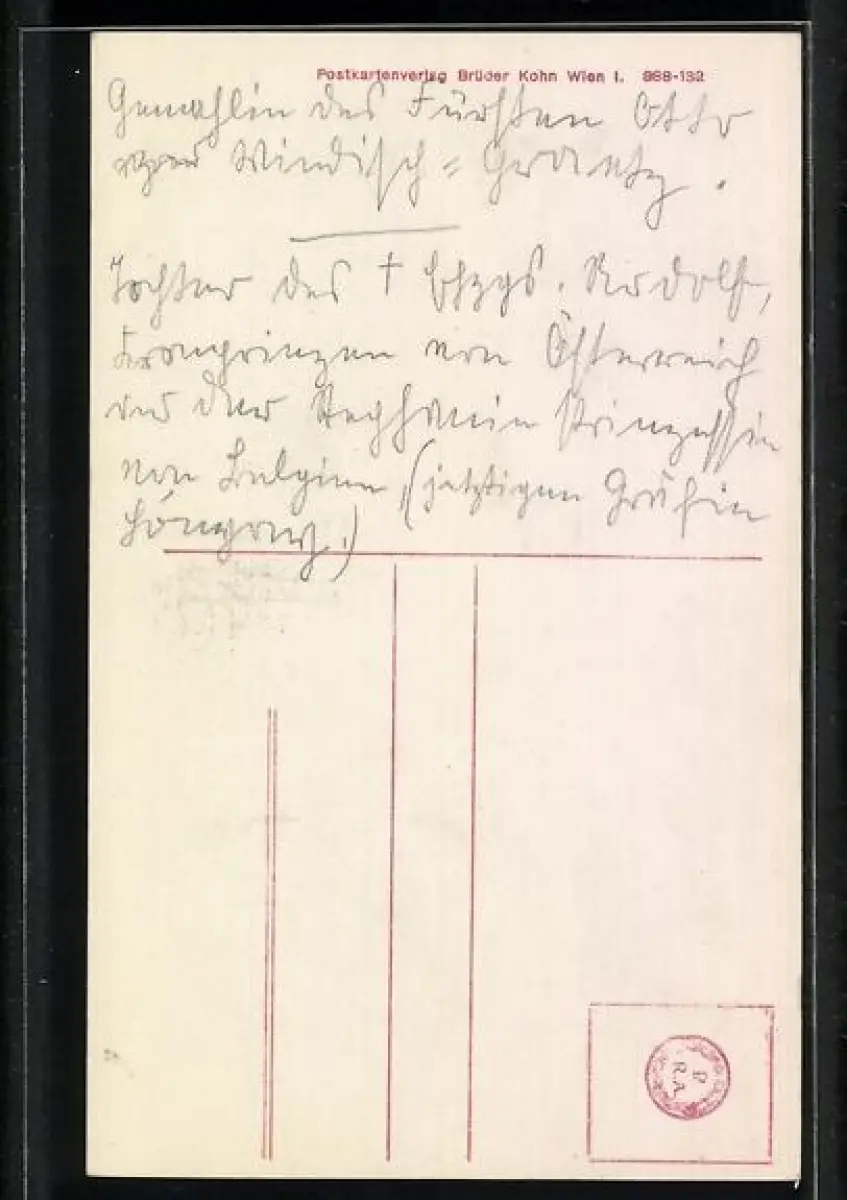 Postkartenverlag Brüder Kohn Wien I. 868-132
Gemahlin des Fürsten Otto
Windisch = Graetz.
Tochter des † Ehzgs. Rudolf,
Kronprinzen von Österreich
der Stephanie Prinzessin
von Belgien, (jetztigen Gräfin
Lónyay.)
R.A.